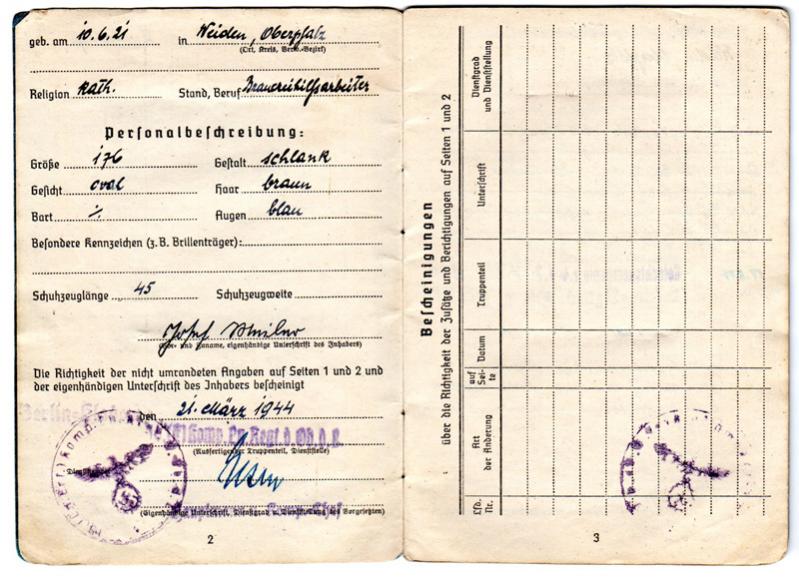 geb. am 10.6.21 in Weiden, Oberpfalz
(Ort, Kreis, Verw.-Bezirk)
Religion kath. Stand, Beruf Brauereihilfsarbeiter
Personalbeschreibung:
Größe 176 Gestalt schlank
Gesicht oval Haar braun
Bart ./. Augen blau
Besondere Kennzeichen (z.B. Brillenträger):
Schuhzeuglänge 45 Schuhzeugweite
Josef
(Vor- und Zuname, eigenhändige Unterschrift des Inhabers)
Die Richtigkeit der nicht umrandeten Angaben auf Seiten 1 und 2 und
der eigenhändigen Unterschrift des Inhabers bescheinigt
Berlin- den 21. März 1944
Komp. Regt. d. Ob. d. L.
(Ausfertigender Truppenteil, Dienststelle)
Hauptmann u. Komp.-Chef
(Eigenhändige Unterschrift, Dienstgrad u. Dienststellung des Vorgesetzten)
2
Bescheinigungen
über die Richtigkeit der Zusätze und Berichtigungen auf Seiten 1 und 2
Lfd. Nr.
Art der Änderung
auf Seite
Datum
Truppenteil
Unterschrift
Dienstgrad und Dienststellung
3